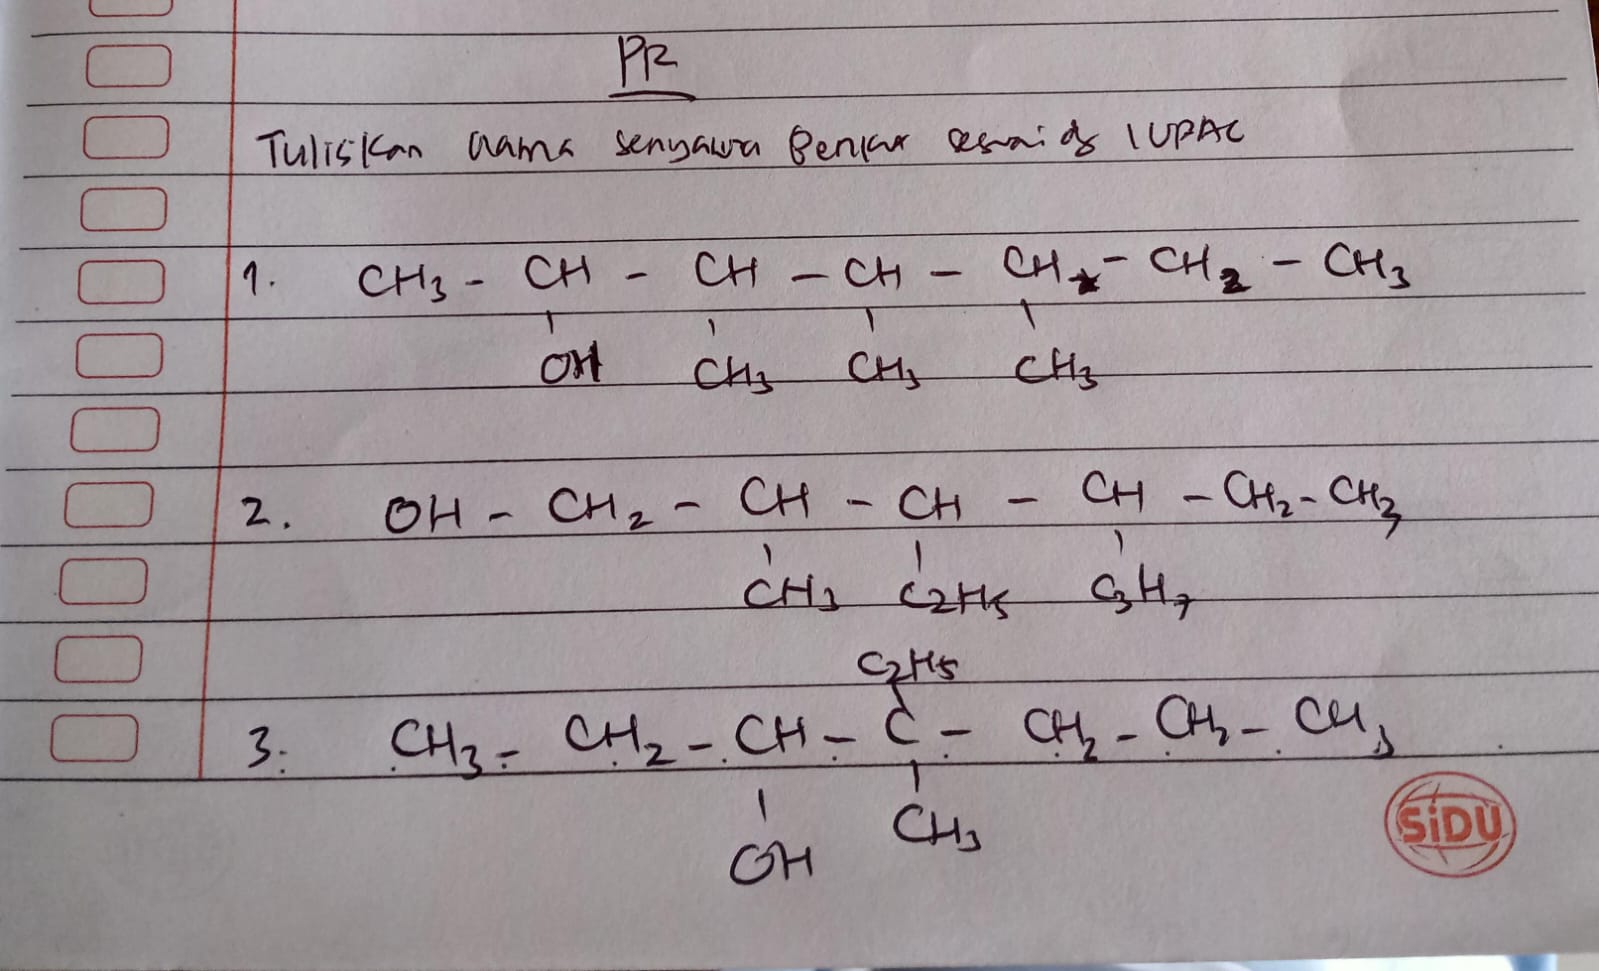 PR
Tuliskan nama senyawa Berikut sesuai dg IUPAC
1. CH3 - CH - CH - CH - CH - CH2 - CH3
OH CH3 CH3 CH3
2. OH - CH2 - CH - CH - CH - CH2 - CH3
CH3 C2H5 C3H7
C2H5
3. CH3 - CH2 - CH - C - CH2 - CH2 - CH3
CH3
OH
SiDU